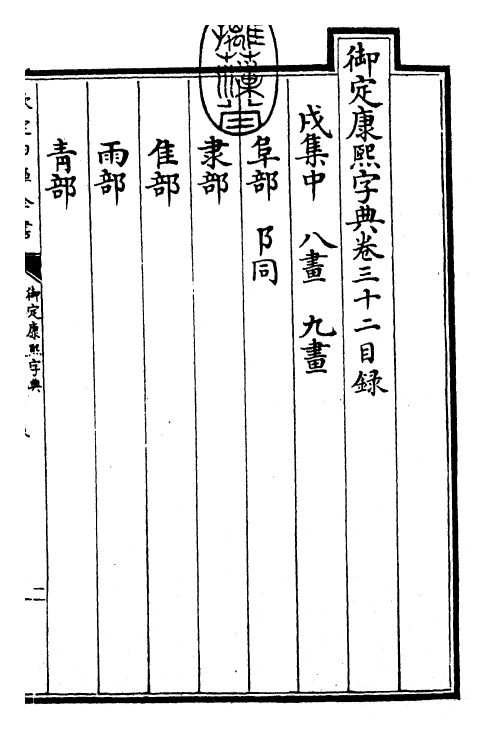 御定康熙字典卷三十二目録
戌集中 八畫 九畫
阜部 阝同
隶部
隹部
雨部
青部
御定康熙字典
二